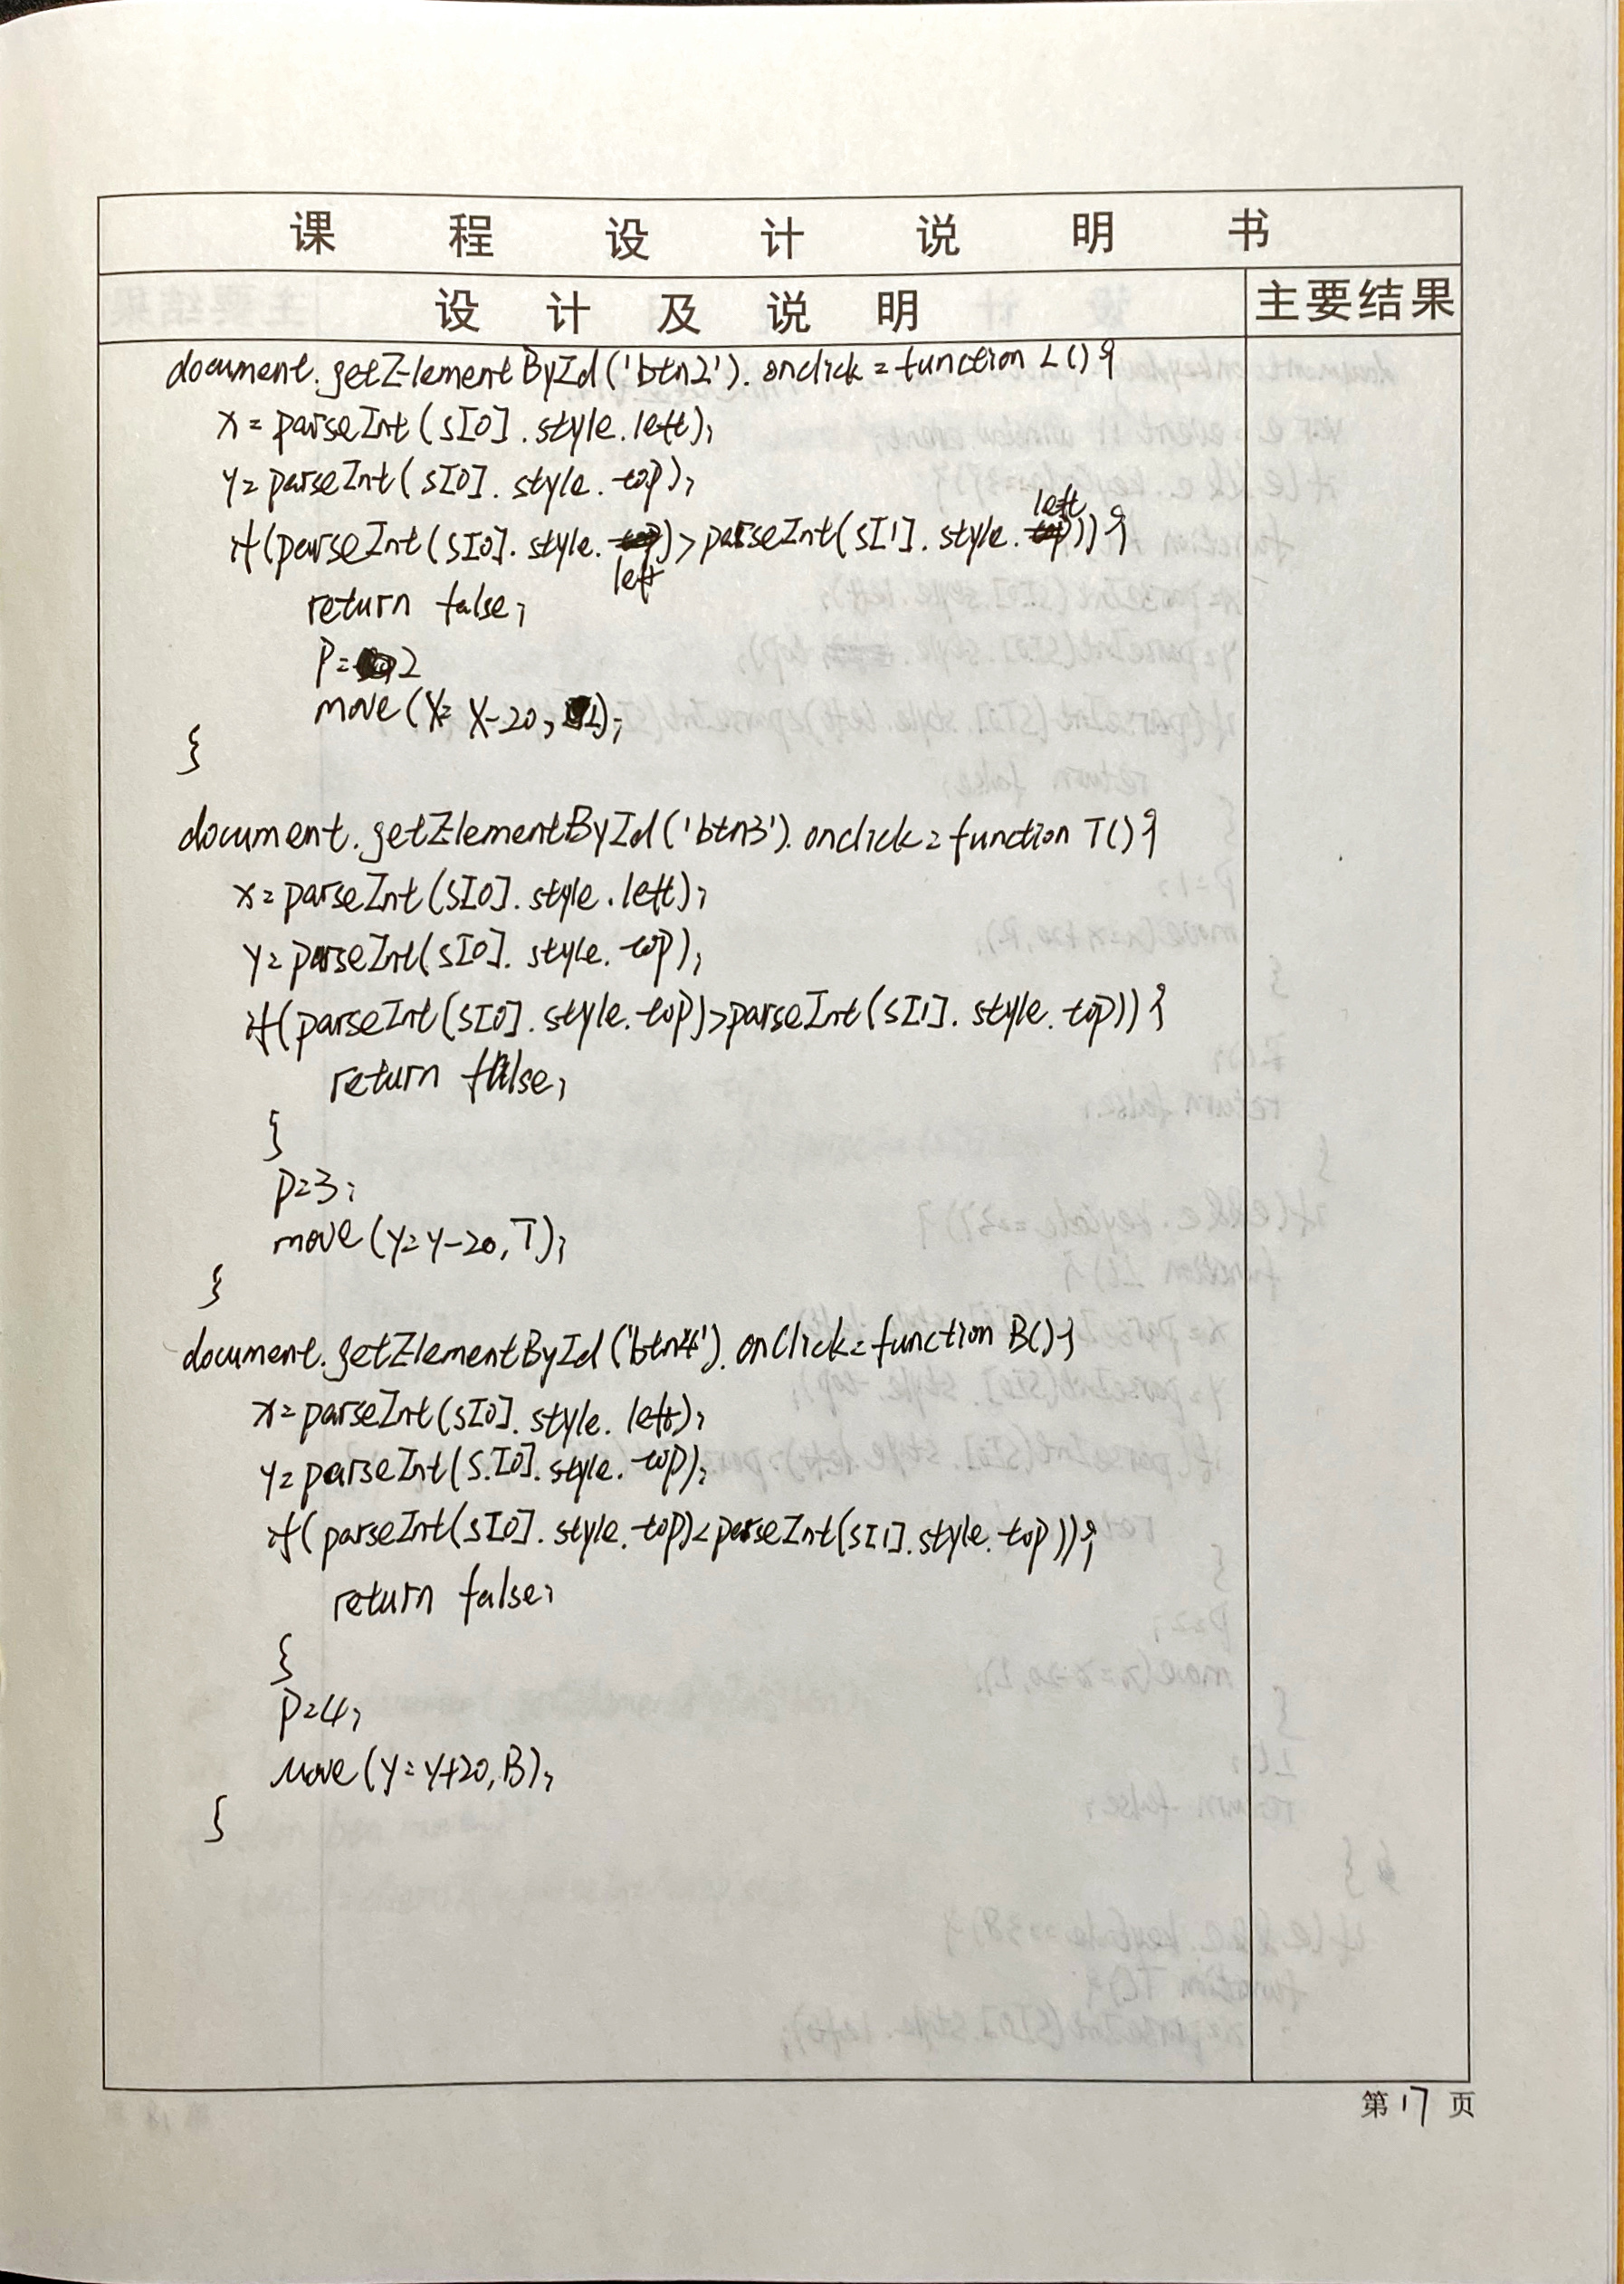 课程设计说明书
设计及说明 主要结果
document.getElementById('btn2').onclick=function L(){
x=parseInt(s[0].style.left);
y=parseInt(s[0].style.top);
if(parseInt(s[0].style.left)>parseInt(s[1].style.left)){
return false;
P=2
move(x=x-20,L);
}
document.getElementById('btn3').onclick=function T(){
x=parseInt(s[0].style.left);
y=parseInt(s[0].style.top);
if(parseInt(s[0].style.top)>parseInt(s[1].style.top)){
return false;
}
P=3;
move(y=y-20,T);
}
document.getElementById('btn4').onClick=function B(){
x=parseInt(s[0].style.left);
y=parseInt(s.[0].style.top);
if(parseInt(s[0].style.top)<parseInt(s[1].style.top)){
return false;
}
P=4;
move(y=y+20,B);
}
第17页